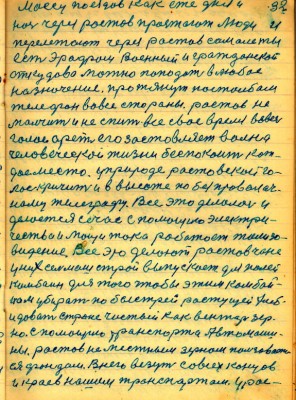 массу поездов как сте дня и 92.
ноч через ростов проезжают люди и
перелетают через ростов самалеты
есть Эрадром Военный и гражданской
откудова можно попадат в любое
назначение, протянут на столбам
телефон вовсе стораны. ростов не
молчит и не спит все свае время вовсе
голас орёт, его заставляет волна
человеческой жизни беспокоит кож-
даеместо. у природе растовской го-
лос кричит и в высоте по без проволоч-
ному телеграфу. Все это делалас и
делается сечас с помощию электри-
чества и мощи тока работает телизо-
видение. Все это делают растовчане
у них селмаш строй выпускает для полей
камбаин для того чтобы этим камбай-
ном убират по быстрей растущей хлеб
и довать стране чистай как вентар зер-
но. с помощию транспорта Автомаши-
ны. растов не местным зерном ползовает-
ся фондам. Внего везут совсех концов
и краев нашим транспортам. у рас-